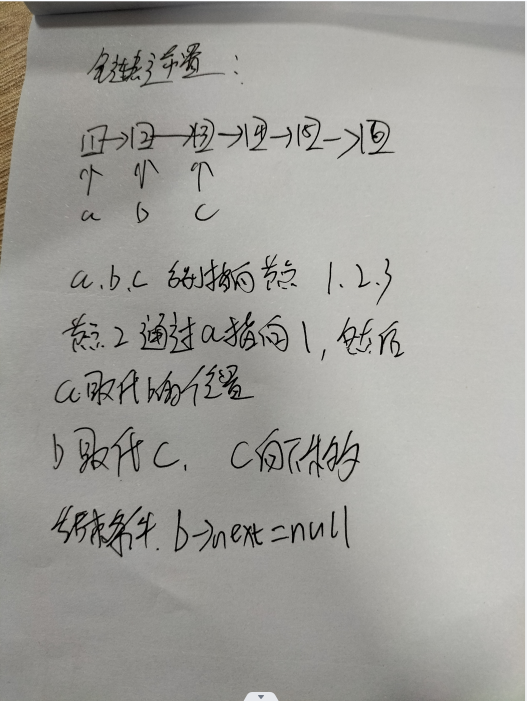 链表逆置:
1→2→3→4→5→6
↑ ↑ ↑
a b c
a.b.c 分别指向节点 1.2.3
节点2通过a指向1,然后
a取代b的位置
b取代c, c向下移动
结束条件. b→next=null